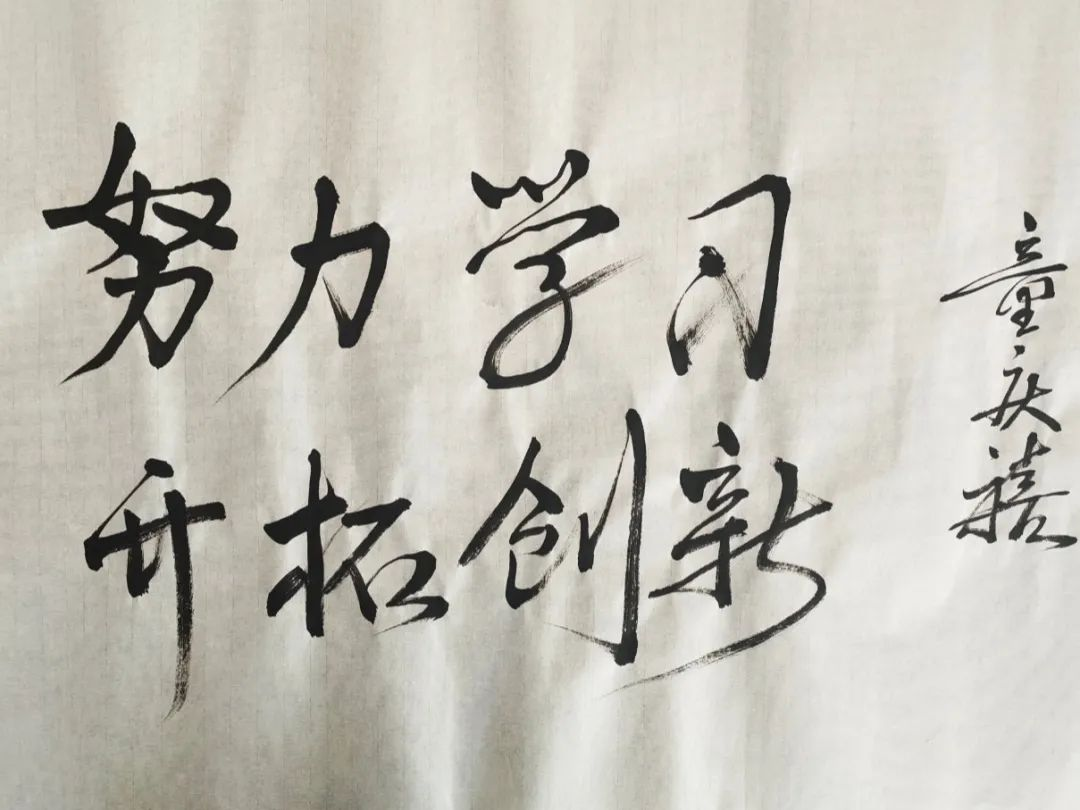 努力学习
开拓创新
童庆禧